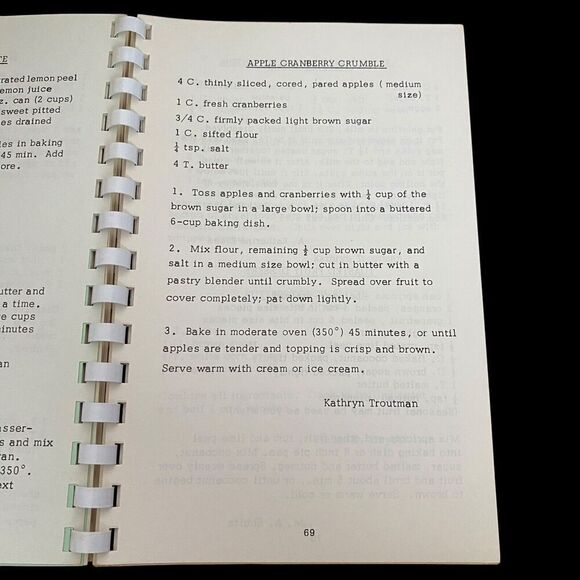 TE
rated lemon peel
emon juice
z. can (2 cups)
sweet pitted
es drained
ies in baking
45 min. Add
ore.
utter and
a time.
re cups
minutes
an
asser-
s and mix
an.
350°.
ext
APPLE CRANBERRY CRUMBLE
4 C. thinly sliced, cored, pared apples ( medium
size)
1 C. fresh cranberries
3/4 C. firmly packed light brown sugar
1 C. sifted flour
¼ tsp. salt
4 T. butter
1. Toss apples and cranberries with ¼ cup of the
brown sugar in a large bowl; spoon into a buttered
6-cup baking dish.
2. Mix flour, remaining ½ cup brown sugar, and
salt in a medium size bowl; cut in butter with a
pastry blender until crumbly. Spread over fruit to
cover completely; pat down lightly.
3. Bake in moderate oven (350°) 45 minutes, or until
apples are tender and topping is crisp and brown.
Serve warm with cream or ice cream.
Kathryn Troutman
69